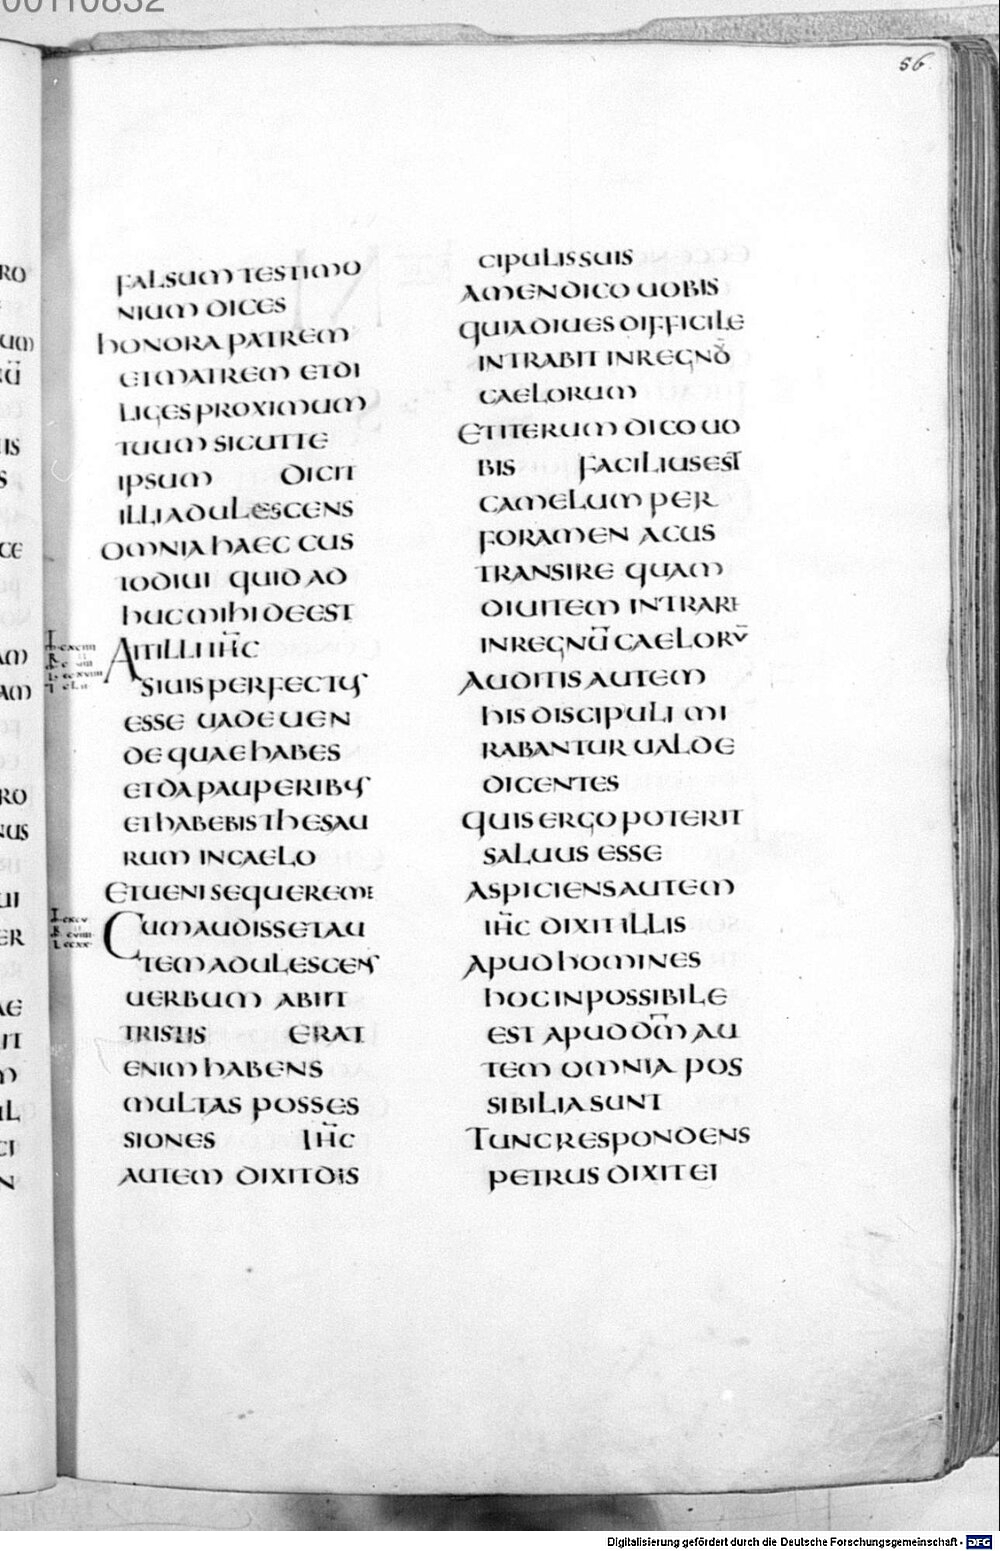 00110832
56
FALSUM TESTIMO
NIUM DICES
hONORA PATREM
ET MATREM ET DI
LIGES PROXIMUM
TUUM SICUT TE
IPSUM DICIT
ILLI ADULESCENS
OMNIA hAEC CUS
TODIUI QUID AD
hUC MIhI DEEST
AIT ILLI IH̅C
SI UIS PERFECTUS
ESSE UADE UEN
DE QUAE hABES
ET DA PAUPERIBUS
ET hABEBIS ThESAU
RUM IN CAELO
ET UENI SEQUERE ME
CUM AUDISSET AU
TEM ADULESCENS
UERBUM ABIIT
TRISTIS ERAT
ENIM hABENS
MULTAS POSSES
SIONES IH̅C
AUTEM DIXIT DIS
CIPULIS SUIS
AMEN DICO UOBIS
QUIA DIUES DIFFICILE
INTRABIT IN REGNO̅
CAELORUM
ET ITERUM DICO UO
BIS FACILIUS EST
CAMELUM PER
FORAMEN ACUS
TRANSIRE QUAM
DIUITEM INTRARE
IN REGNU̅ CAELORU̅
AUDITIS AUTEM
hIS DISCIPULI MI
RABANTUR UALDE
DICENTES
QUIS ERGO POTERIT
SALUUS ESSE
ASPICIENS AUTEM
IH̅C DIXIT ILLIS
APUD hOMINES
hOC INPOSSIBILE
EST APUD DM̅ AU
TEM OMNIA POS
SIBILIA SUNT
TUNC RESPONDENS
PETRUS DIXIT EI
Digitalisierung gefördert durch die Deutsche Forschungsgemeinschaft - DFG